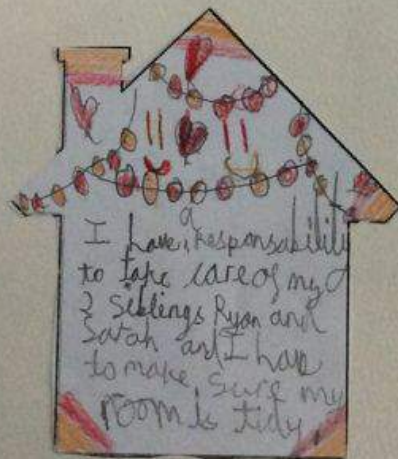 I have a responsability
to take care of my
2 Siblings Ryan and
Sarah and I have
to make sure my
room is tidy